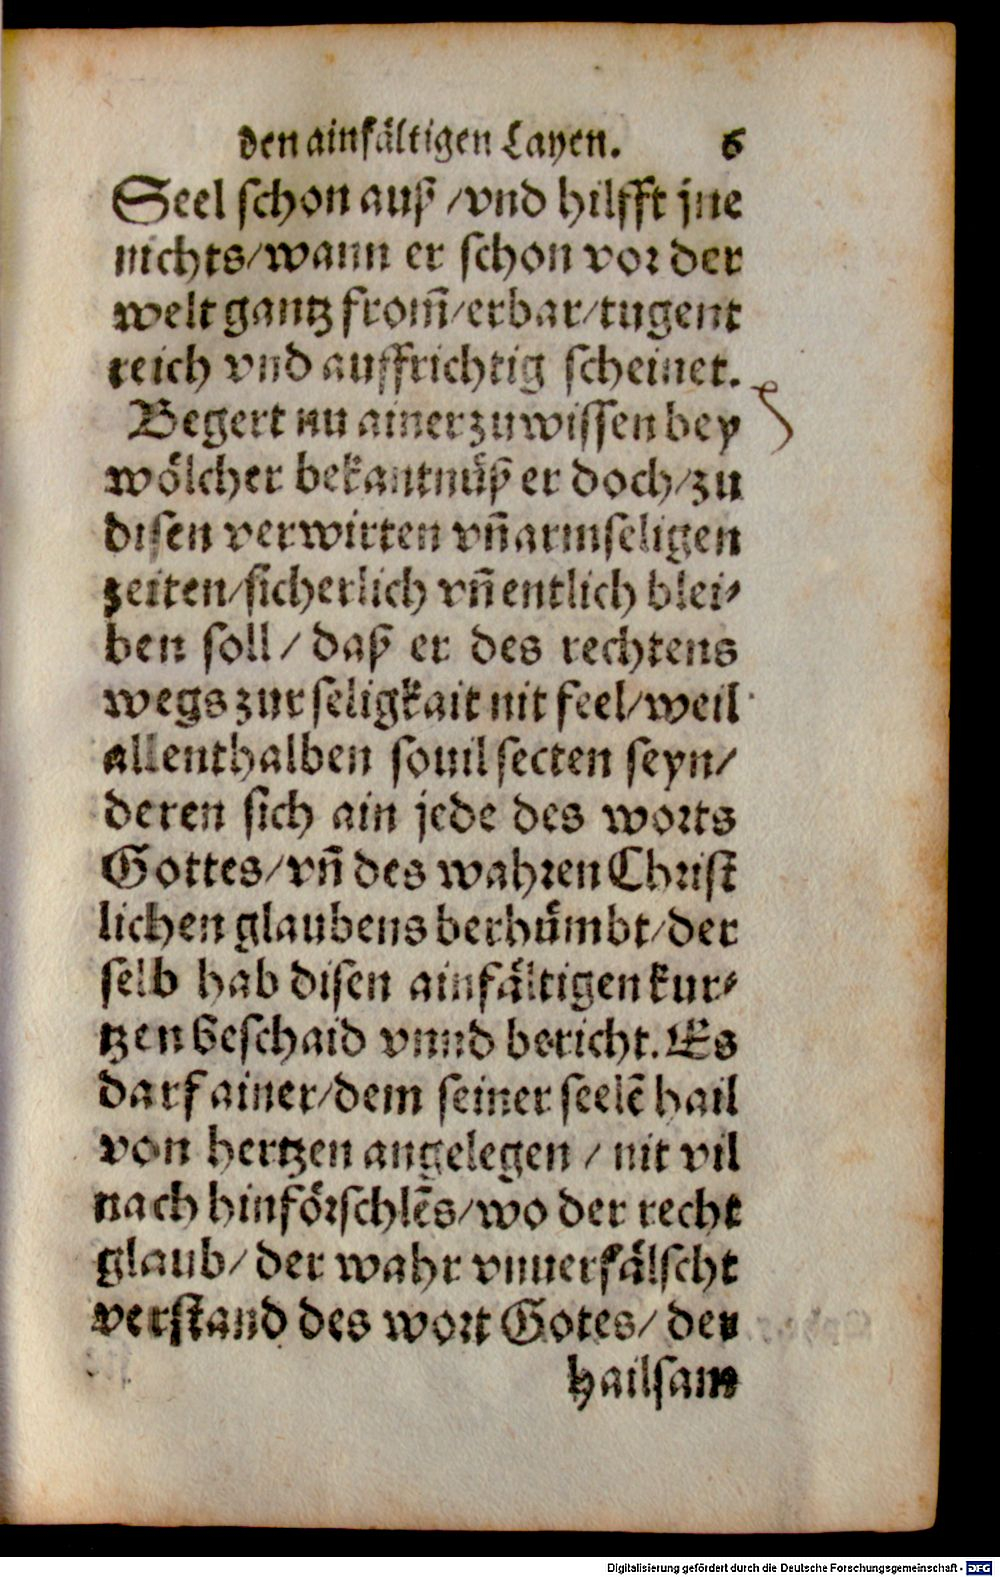 den ainfältigen Layen. 6
Seel schon auß /vnd hilfft jne
nichts/wann er schon vor der
welt gantz from̃/erbar/tugent
reich vnd auffrichtig scheinet.
Begert nu ainer zu wissen bey
wölcher bekantnüß er doch/zu
disen verwirten vñ armseligen
zeiten/sicherlich vñ entlich blei-
ben soll/ daß er des rechtens
wegs zur seligkait nit feel/weil
allenthalben souil secten seyn/
deren sich ain jede des worts
Gottes/vñ des wahren Christ
lichen glaubens berhümbt/der
selb hab disen ainfältigen kur-
tzen beschaid vnnd bericht. Es
darf ainer/dem seiner seelẽ hail
von hertzen angelegen / nit vil
nach hinförschlẽs/wo der recht
glaub/ der wahr vnuerfälscht
verstand des wort Gotes/ der
hailsam
Digitalisierung gefördert durch die Deutsche Forschungsgemeinschaft - DFG